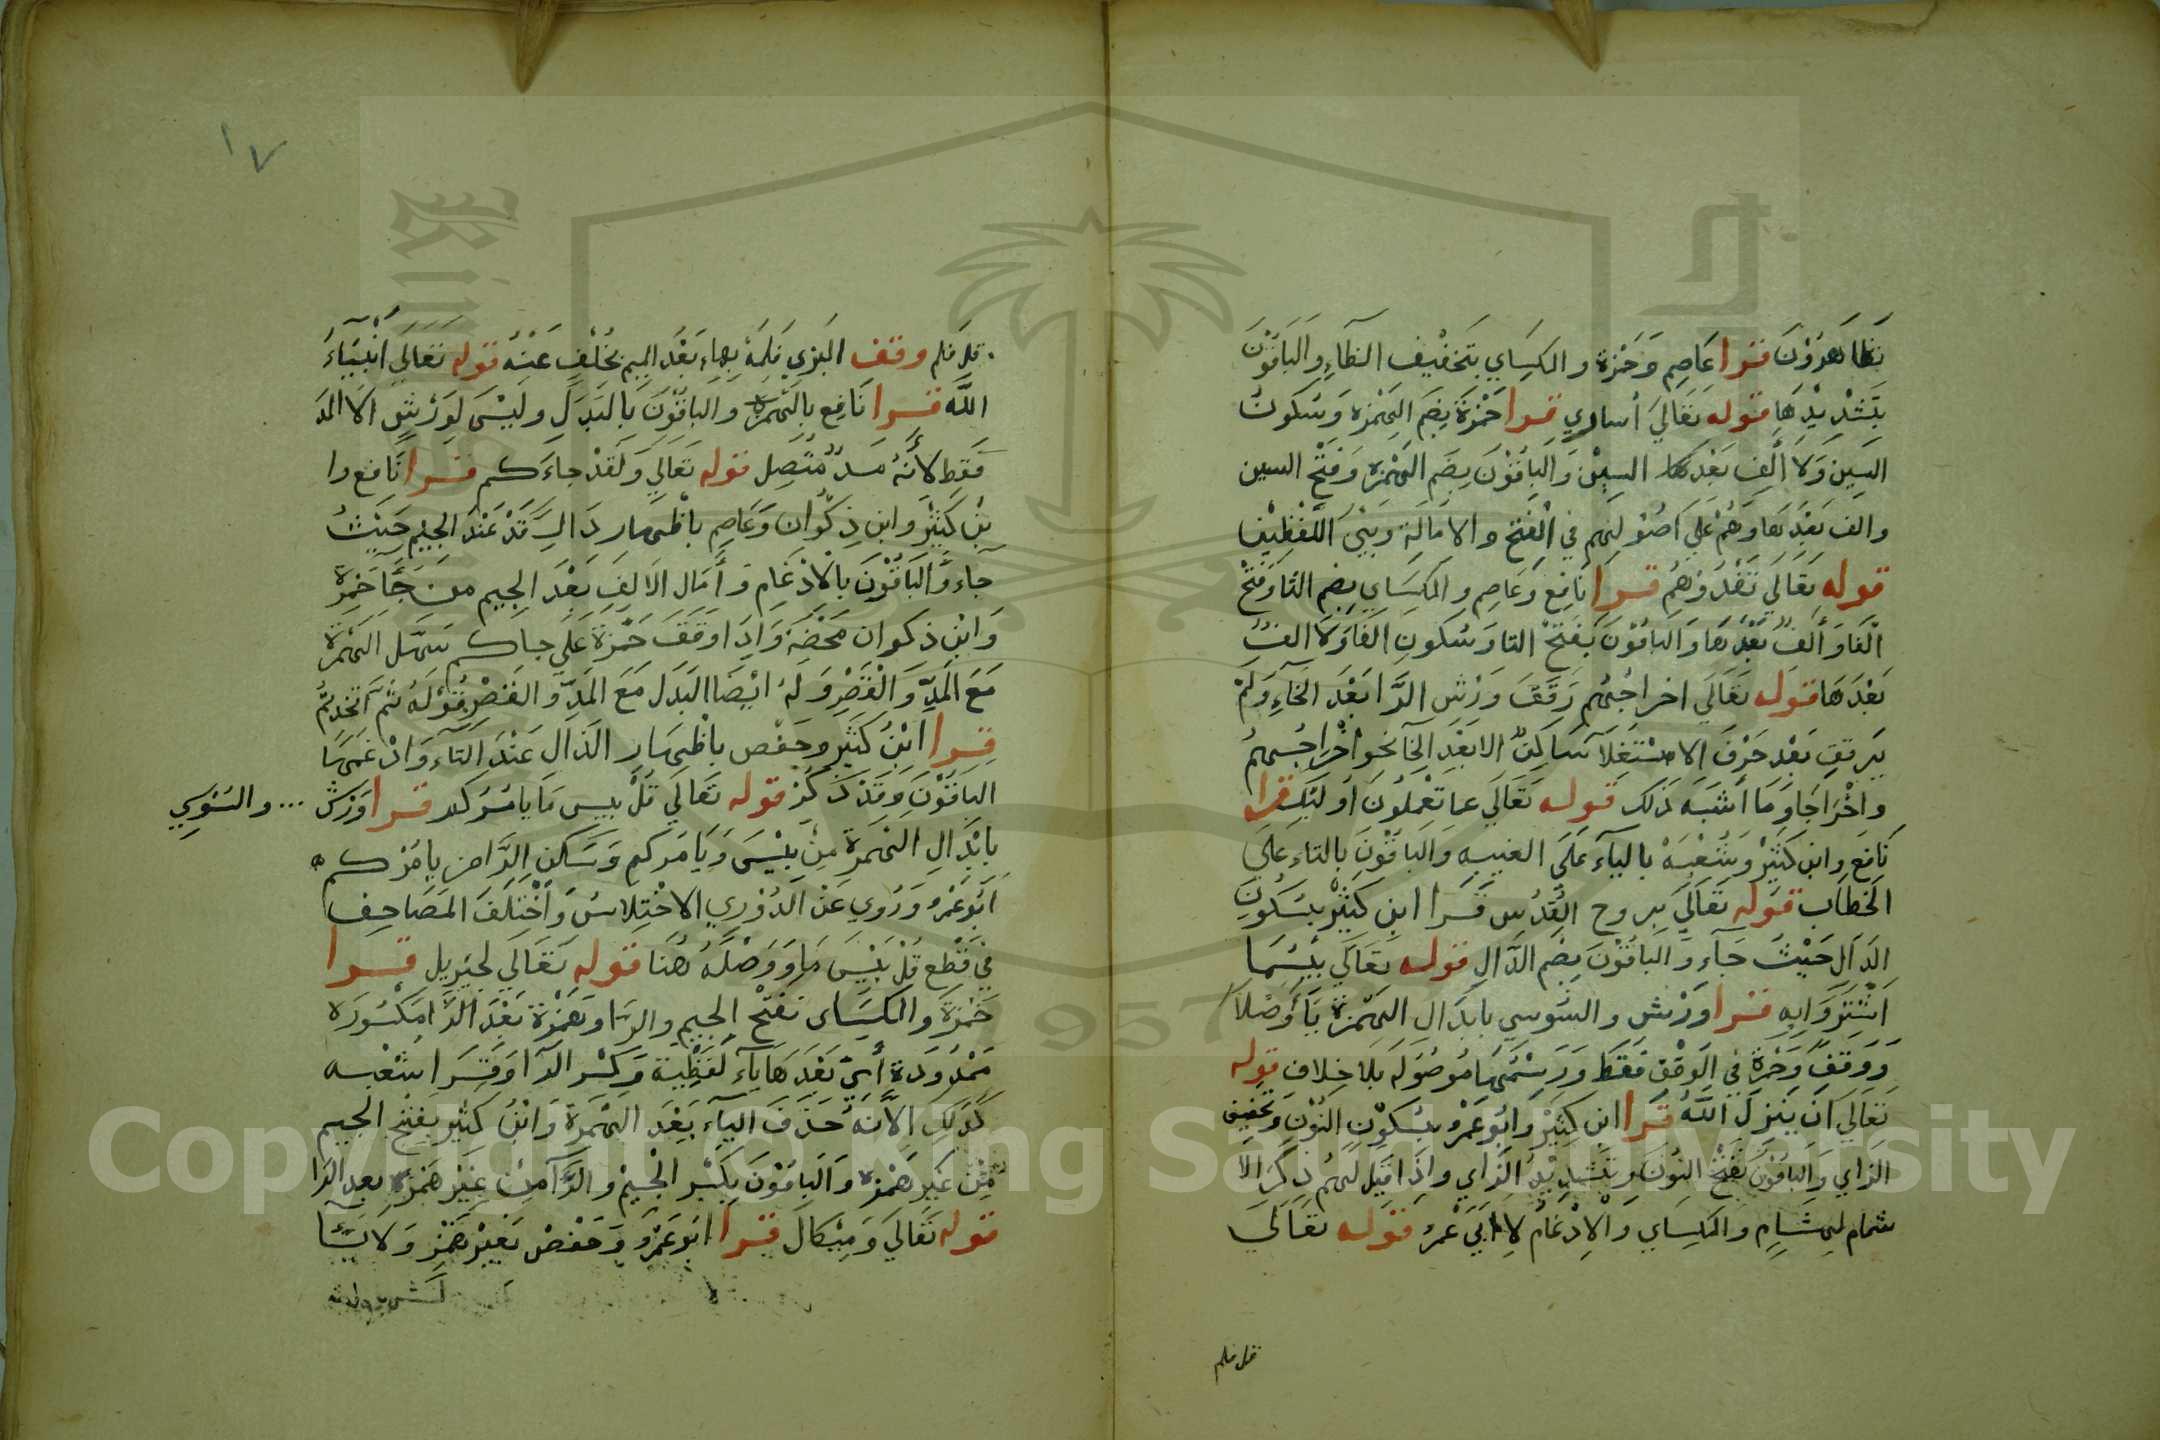 تظاهرون قرا عاصم وحمزة والكساي بتخفيف الظاء والباقون
بتشديدها قوله تعالي أساري قرا حمزة بضم الهمزة وسكون
السين ولا ألف بعدها السين والباقون بضم الهمزة وفتح السين
والف بعدها وهم علي اصولهم في الفتح والامالة وبين اللفظين
قوله تعالي تفدوهم قرا نافع وعاصم والكساي بضم التا وفتح
الفا وألف بعدها والباقون بفتح التا وسكون الفا ولا الف
بعدها قوله تعالي اخراجهم رقق ورش الرا بعد الخاء ولم
ير قق بعد حرف الاستعلا ساكن الا بعد الخا نحو اخراجهم
واخراجا وما أشبه ذلك قوله تعالي عما تعملون اوليك قرا
نافع وابن كثير وشعبه بالياء علي الغيبه والباقون بالتاء علي
الخطاب قوله تعالي بروح القدس قرا ابن كثير بسكون
الدال حيث جاء والباقون بضم الدال قوله تعالي بيسما
اشتروا به قرا ورش والسوسي بابدال الهمزة ياء وصلا
ووقف وحمزة في الوقف فقط ورسمها موصوله بلا خلاف قوله
تعالي ان ينزل الله قرا ابن كثير وابو عمرو بسكون النون وتخفيف
الزاي والباقون بفتح النون وبتشديد الزاي واذا قيل لهم ذكر الا
شمام لهشام والكساي والادغام لابي عمرو قوله تعالي
قل فلم
١٧
قل فلم وقف البزي فلمه بهاء بعد الميم بخلف عنه قوله تعالي انبياء
الله قرا نافع بالهمزة والباقون بالبدل وليس لورش الا المد
فقط لأنه مد متصل قوله تعالي ولقد جاءكم قرا نافع وا
بن كثير وابن ذكوان وعاصم باظهار دال قد عند الجيم حيث
جاء والباقون بالادغام وأمال الالف بعد الجيم من جا حمزة
وابن ذكوان محضة واذا وقف حمزة علي جاكم سهل الهمزة
مع المد والقصر وله ايضا البدل مع المد والقصر قوله ثم اتخذتم
قرا ابن كثير وحفص باظهار الذال عند التاء وادغمها
الباقون وقد ذكر قوله تعالي قل بيس ما يامركم قرا ورش ... والسوسي
بابدال الهمزة من بيس ويامركم وسكن الرا من يامركم
ابو عمرو وروي عن الدوري الاختلاس واختلف المصاحف
في قطع قل بيس ما ووصله هنا قوله تعالي لجبريل قرا
حمزة والكساى بفتح الجيم والرا وهمزة بعد الرا مكسورة
ممدودة أي بعدها ياء لفظية وكسر الرا وقرا شعبه
كذلك الا انه حذف الياء بعد الهمزة وابن كثير بفتح الجيم
من غير همزه والباقون بكسر الجيم والرا من غير همزة بعد الرا
قوله تعالي وميكال قرا ابو عمرو وحفص بغير همز ولا ياء